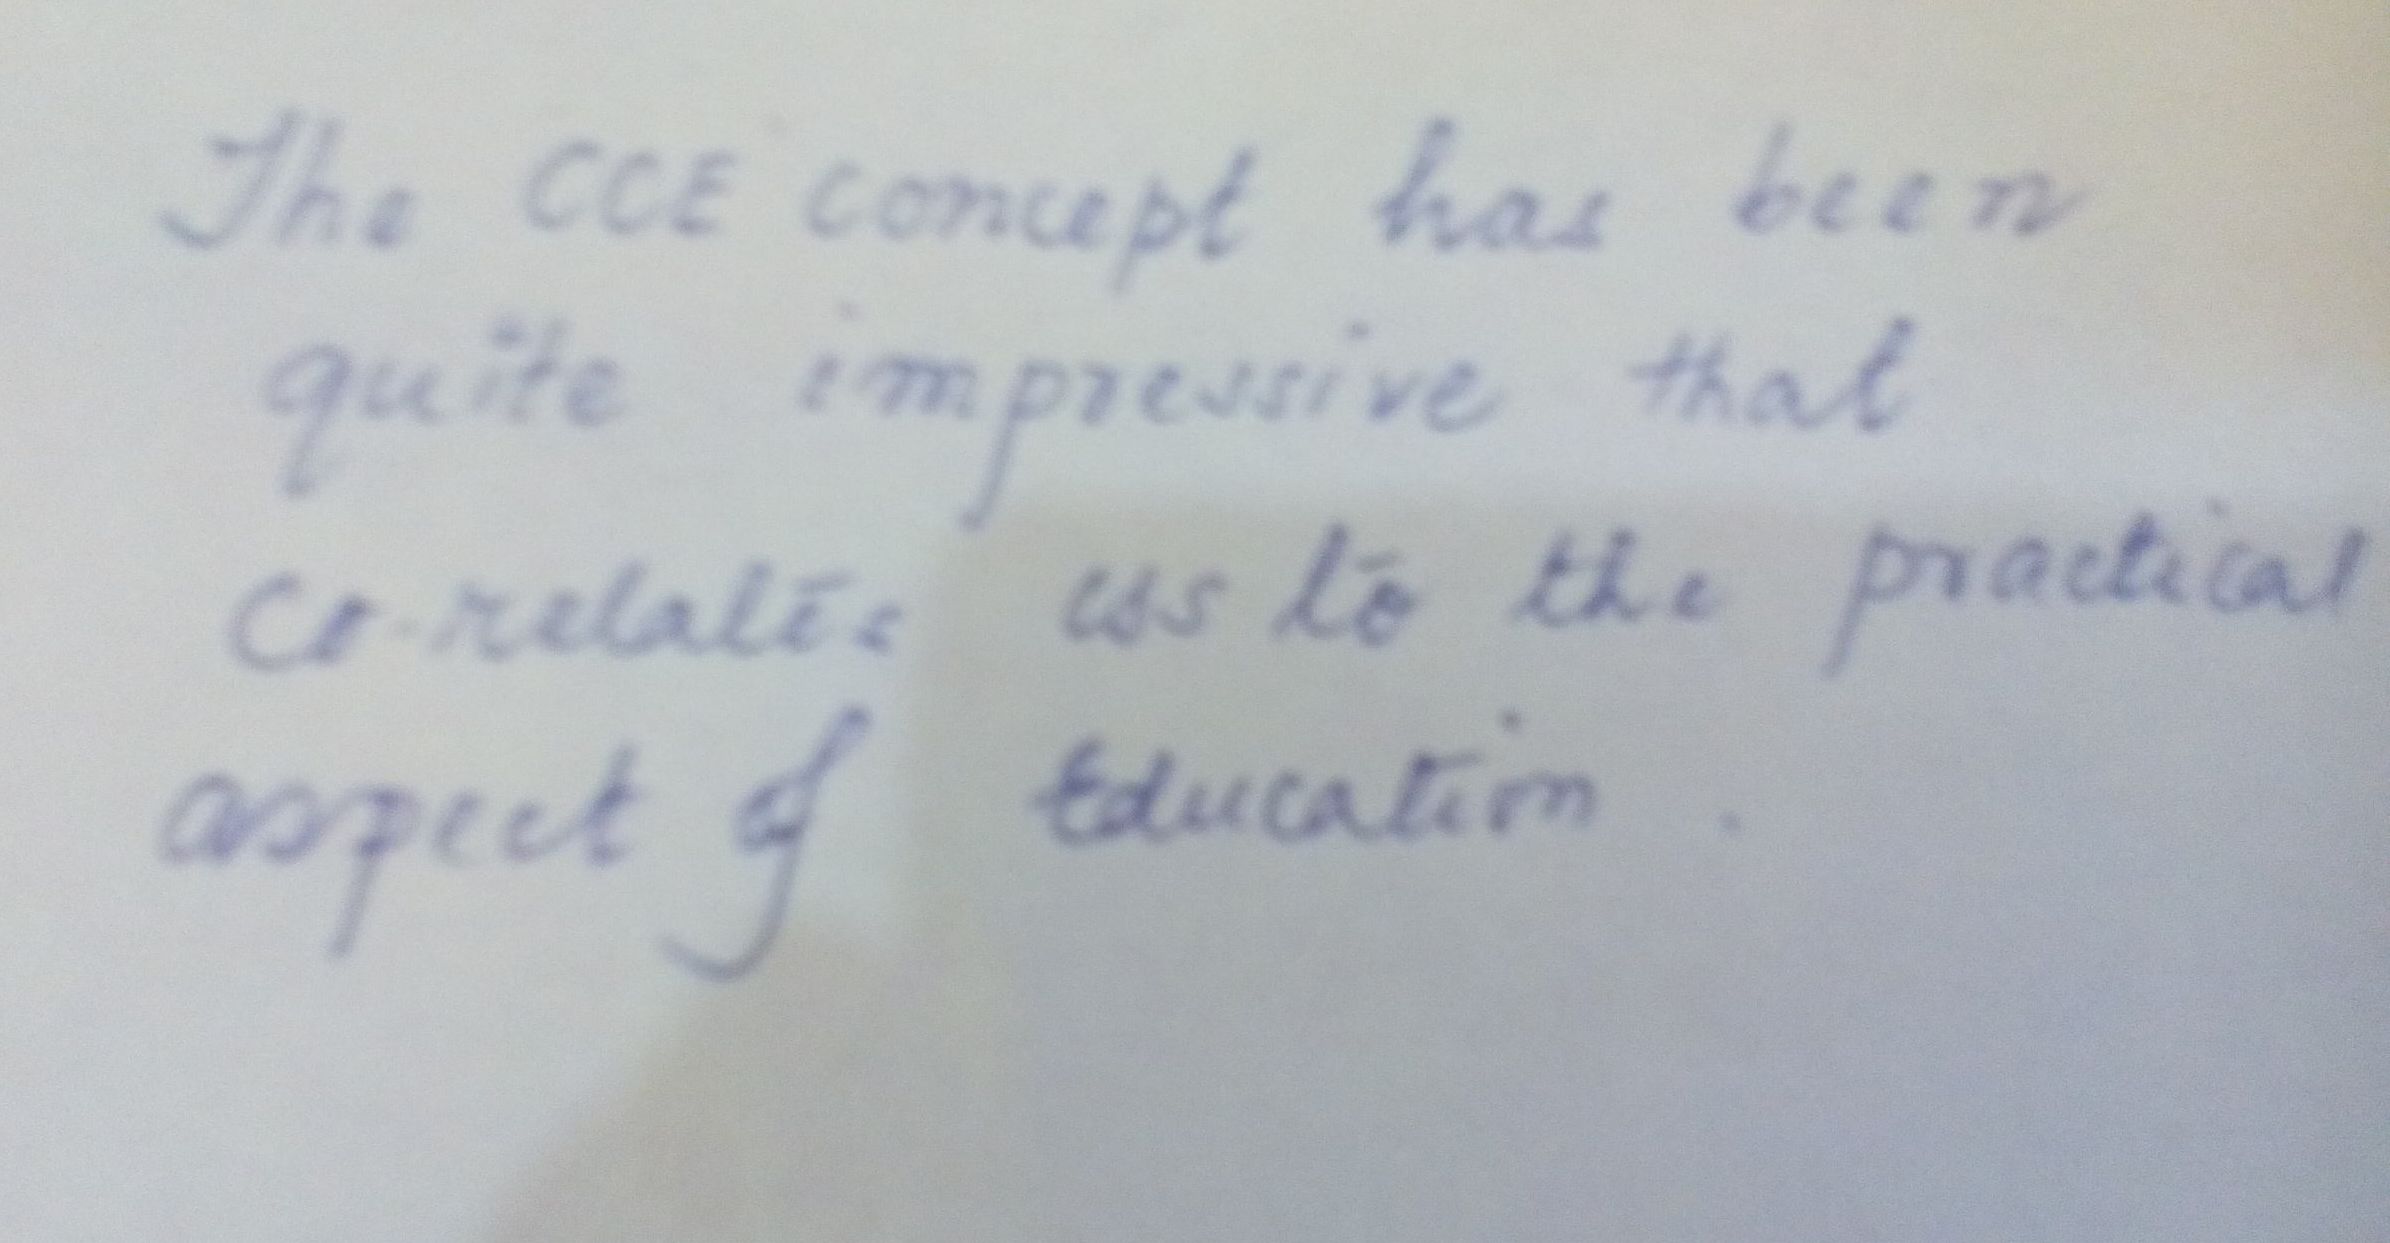 The CCE concept has been
quite impressive that
co-relates us to the practical
aspect of Education .